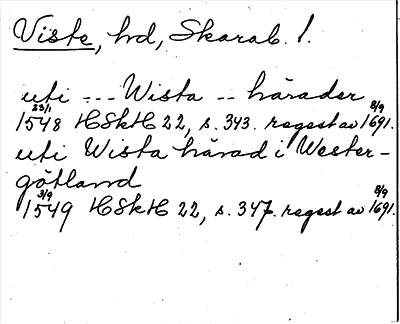 Viste, hd, Skarab. l.
uti --- Wista -- härader
23/1 1548 HSkH 22, s. 343. regest av 8/9 1691.
uti Wista härad i Wester-
götland
3/9 1549 HSkH 22, s. 347. regest av 8/9 1691.